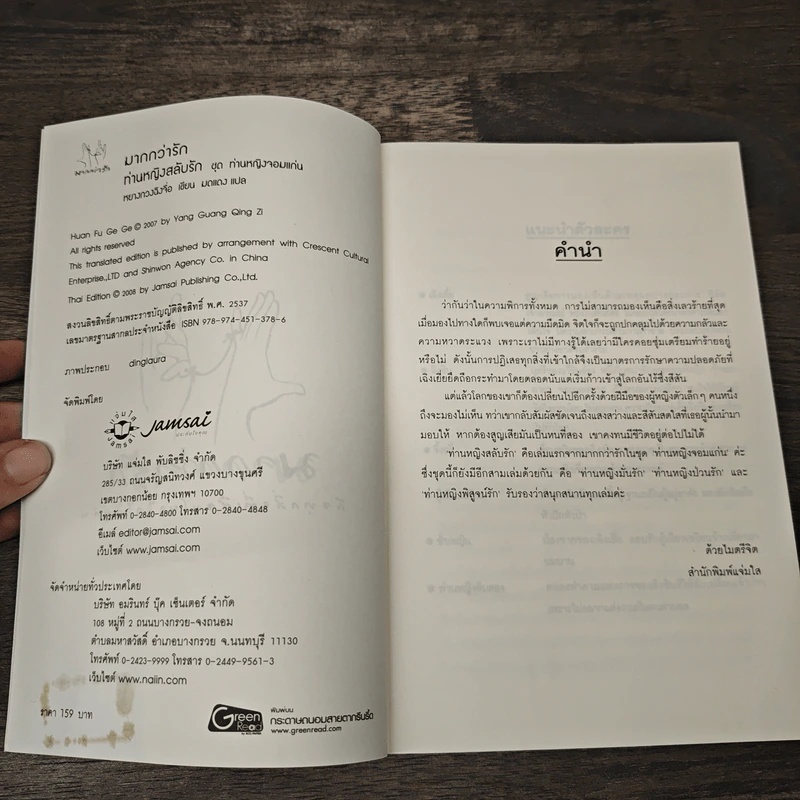 มากกว่ารัก
มากกว่ารัก
ท่านหญิงสลับรัก ชุด ท่านหญิงจอมแก่น
หยางกวงฉิงจื่อ เขียน มดแดง แปล
Huan Fu Ge Ge © 2007 by Yang Guang Qing Zi
All rights reserved
This translated edition is published by arrangement with Crescent Cultural
Enterprise.,LTD and Shinwon Agency Co. in China
Thai Edition © 2008 by Jamsai Publishing Co.,Ltd.
สงวนลิขสิทธิ์ตามพระราชบัญญัติลิขสิทธิ์ พ.ศ. 2537
เลขมาตรฐานสากลประจำหนังสือ ISBN 978-974-451-378-6
ภาพประกอบ dinglaura
จัดพิมพ์โดย
แจ่มใส jamsai
Jamsai
บริษัท แจ่มใส พับลิชชิ่ง จำกัด
285/33 ถนนจรัญสนิทวงศ์ แขวงบางขุนศรี
เขตบางกอกน้อย กรุงเทพฯ 10700
โทรศัพท์ 0-2840-4800 โทรสาร 0-2840-4848
อีเมล์ editor@jamsai.com
เว็บไซต์ www.jamsai.com
จัดจำหน่ายทั่วประเทศโดย
บริษัท อมรินทร์ บุ๊ค เซ็นเตอร์ จำกัด
108 หมู่ที่ 2 ถนนบางกรวย-จงถนอม
ตำบลมหาสวัสดิ์ อำเภอบางกรวย จ.นนทบุรี 11130
โทรศัพท์ 0-2423-9999 โทรสาร 0-2449-9561-3
เว็บไซต์ www.naiin.com
ราคา 159 บาท
Green Read
พิมพ์บน
กระดาษถนอมสายตากรีนรี้ด
www.greenread.com
แนะนำตัวละคร
คำนำ
ว่ากันว่าในความพิการทั้งหมด การไม่สามารถมองเห็นคือสิ่งเลวร้ายที่สุด
เมื่อมองไปทางใดก็พบเจอแต่ความมืดมิด จิตใจก็จะถูกปกคลุมไปด้วยความกลัวและ
ความหวาดระแวง เพราะเราไม่มีทางรู้ได้เลยว่ามีใครคอยซุ่มเตรียมทำร้ายอยู่
หรือไม่ ดังนั้นการปฏิเสธทุกสิ่งที่เข้าใกล้จึงเป็นมาตรการรักษาความปลอดภัยที่
เฉิงเยี่ยยึดถือกระทำมาโดยตลอดนับแต่เริ่มก้าวเข้าสู่โลกอันไร้ซึ่งสีสัน
แต่แล้วโลกของเขาก็ต้องเปลี่ยนไปอีกครั้งด้วยฝีมือของผู้หญิงตัวเล็กๆ คนหนึ่ง
ถึงจะมองไม่เห็น ทว่าเขากลับสัมผัสชัดเจนถึงแสงสว่างและสีสันสดใสที่เธอผู้นั้นนำมา
มอบให้ หากต้องสูญเสียมันเป็นหนที่สอง เขาคงทนมีชีวิตอยู่ต่อไปไม่ได้
'ท่านหญิงสลับรัก' คือเล่มแรกจากมากกว่ารักในชุด 'ท่านหญิงจอมแก่น' ค่ะ
ซึ่งชุดนี้ก็ยังมีอีกสามเล่มด้วยกัน คือ 'ท่านหญิงมั่นรัก' 'ท่านหญิงป่วนรัก' และ
'ท่านหญิงพิสูจน์รัก' รับรองว่าสนุกสนานทุกเล่มค่ะ
ด้วยไมตรีจิต
สำนักพิมพ์แจ่มใส